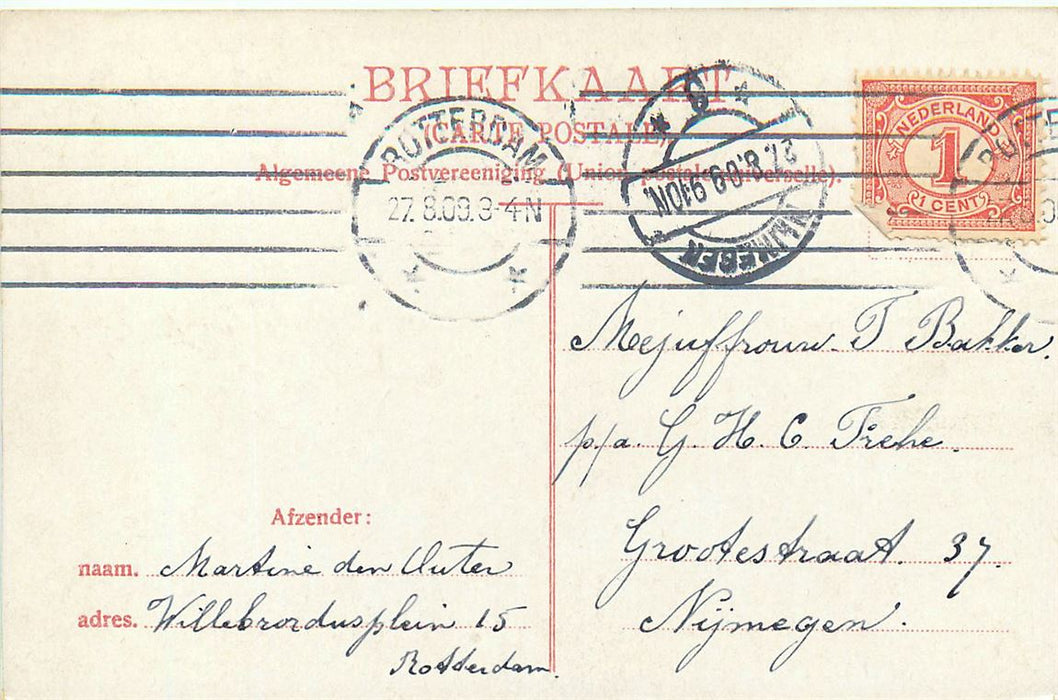 BRIEFKAART
(CARTE POSTALE)
Algemeene Postvereeniging (Union postale universelle).
ROTTERDAM
27.8.09.3-4N
6
27.8.09.9-10N.
NIJMEGEN
NEDERLAND
1
1 CENT
Mejuffrouw T Bakker.
p/a. G. H. C Trehe.
Grootestraat. 37.
Nijmegen.
Afzender:
naam. Martine den Outer
adres. Willebrordusplein 15
Rotterdam.